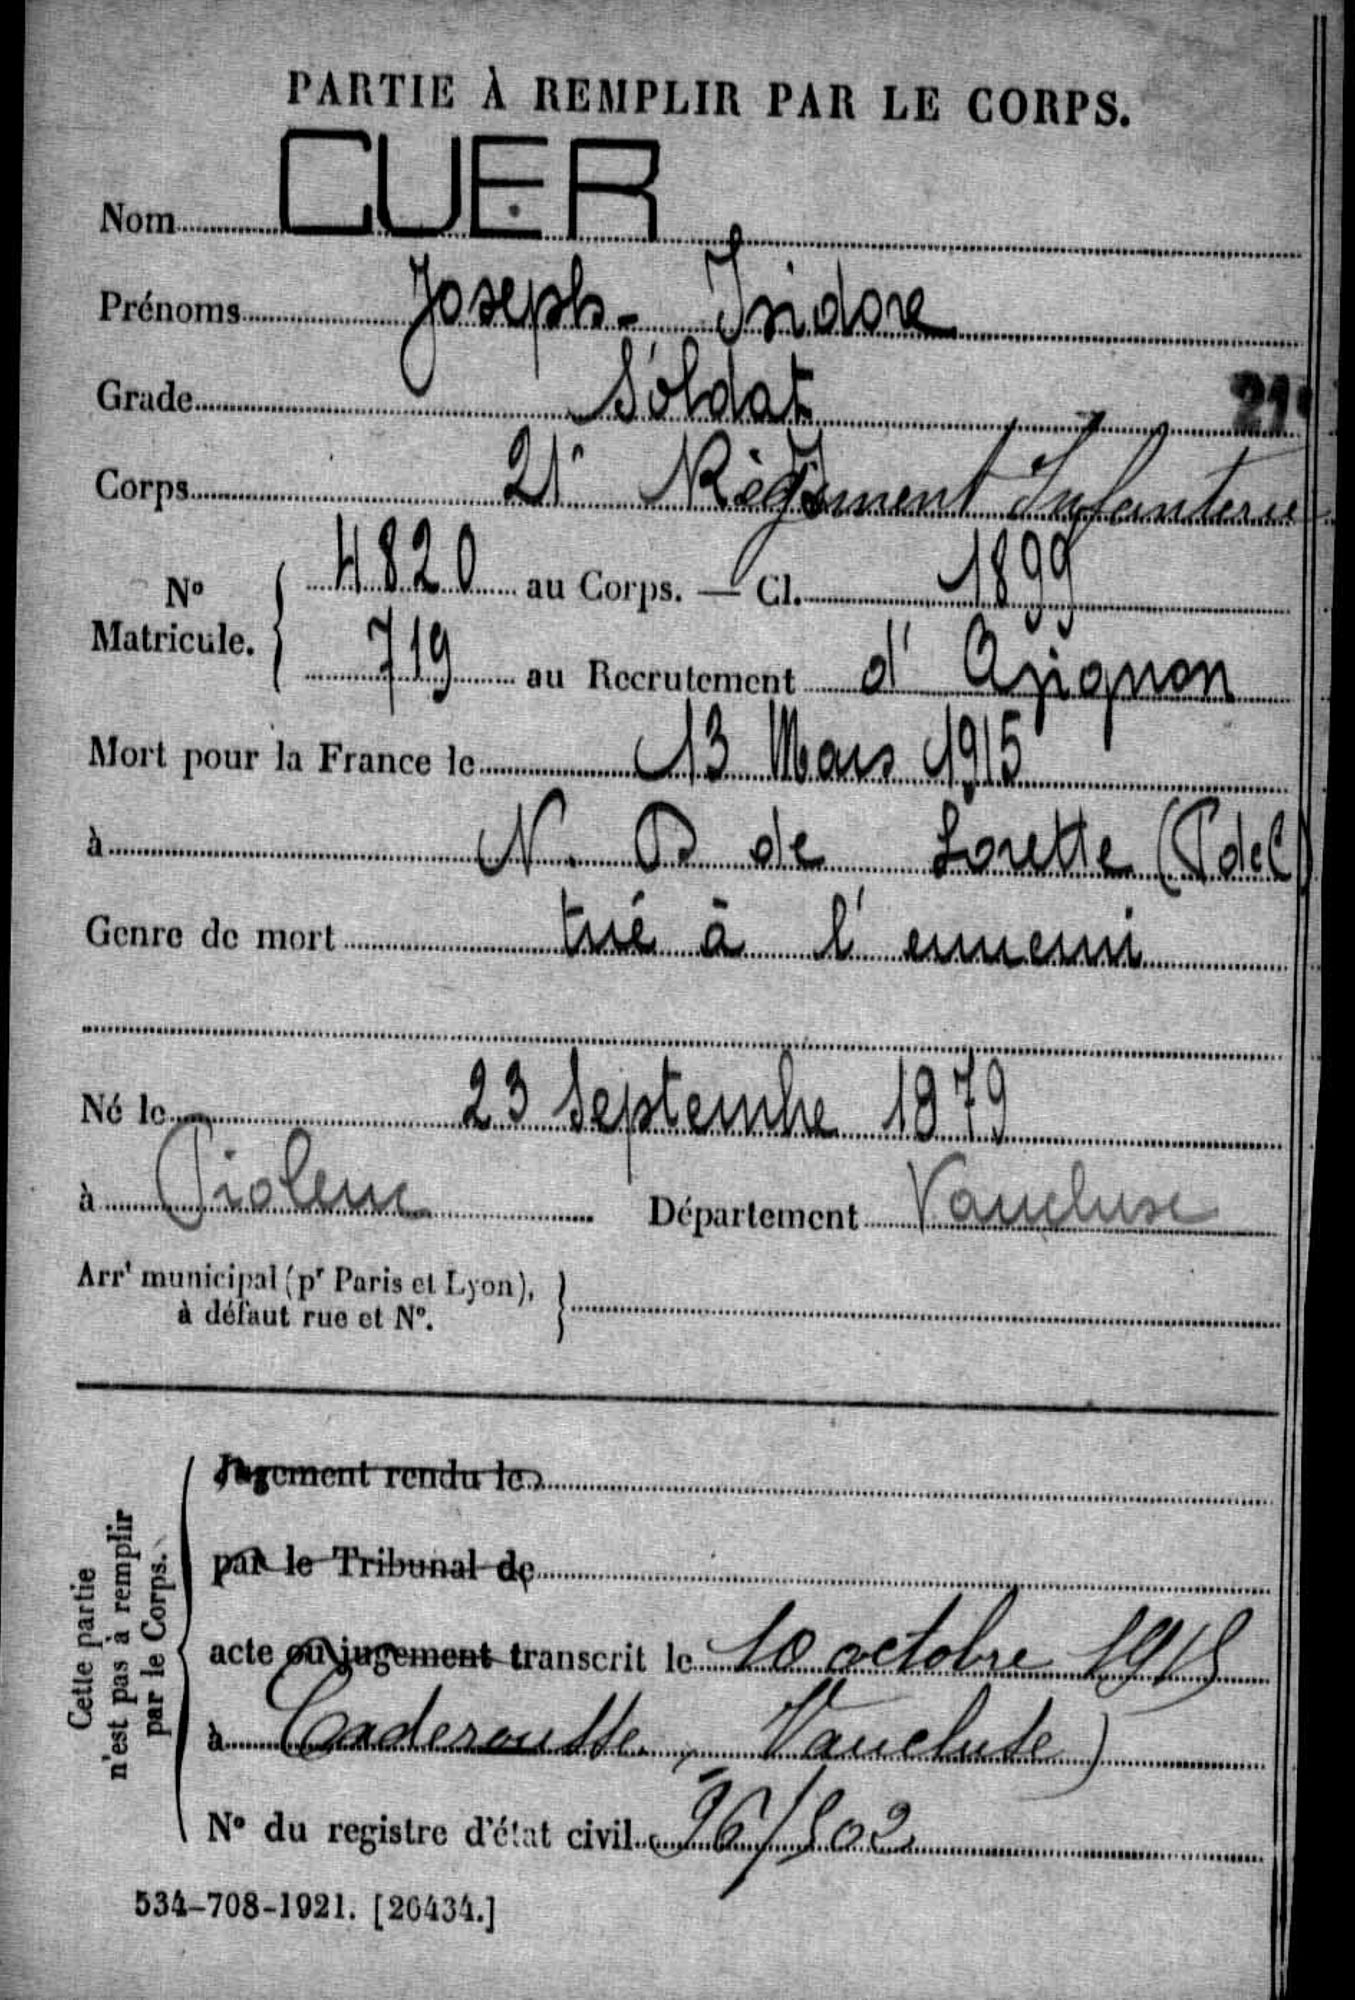 PARTIE À REMPLIR PAR LE CORPS.
Nom CUER
Prénoms Joseph - Isidore
Grade Soldat 21e
Corps 21e Régiment Infanterie
No Matricule. 4820 au Corps. — Cl. 1899
719 au Recrutement d'Avignon
Mort pour la France le 13 Mars 1915
à N. D de Lorette (P d C)
Genre de mort tué à l'ennemi
Né le 23 Septembre 1879
à Piolenc Département Vaucluse
Arrt municipal (pr Paris et Lyon),
à défaut rue et No.
Cette partie
n'est pas à remplir
par le Corps.
Jugement rendu le
par le Tribunal de
acte ou jugement transcrit le 10 octobre 1915
à Caderousse, Vaucluse)
No du registre d'état civil
534-708-1921. [26434.]